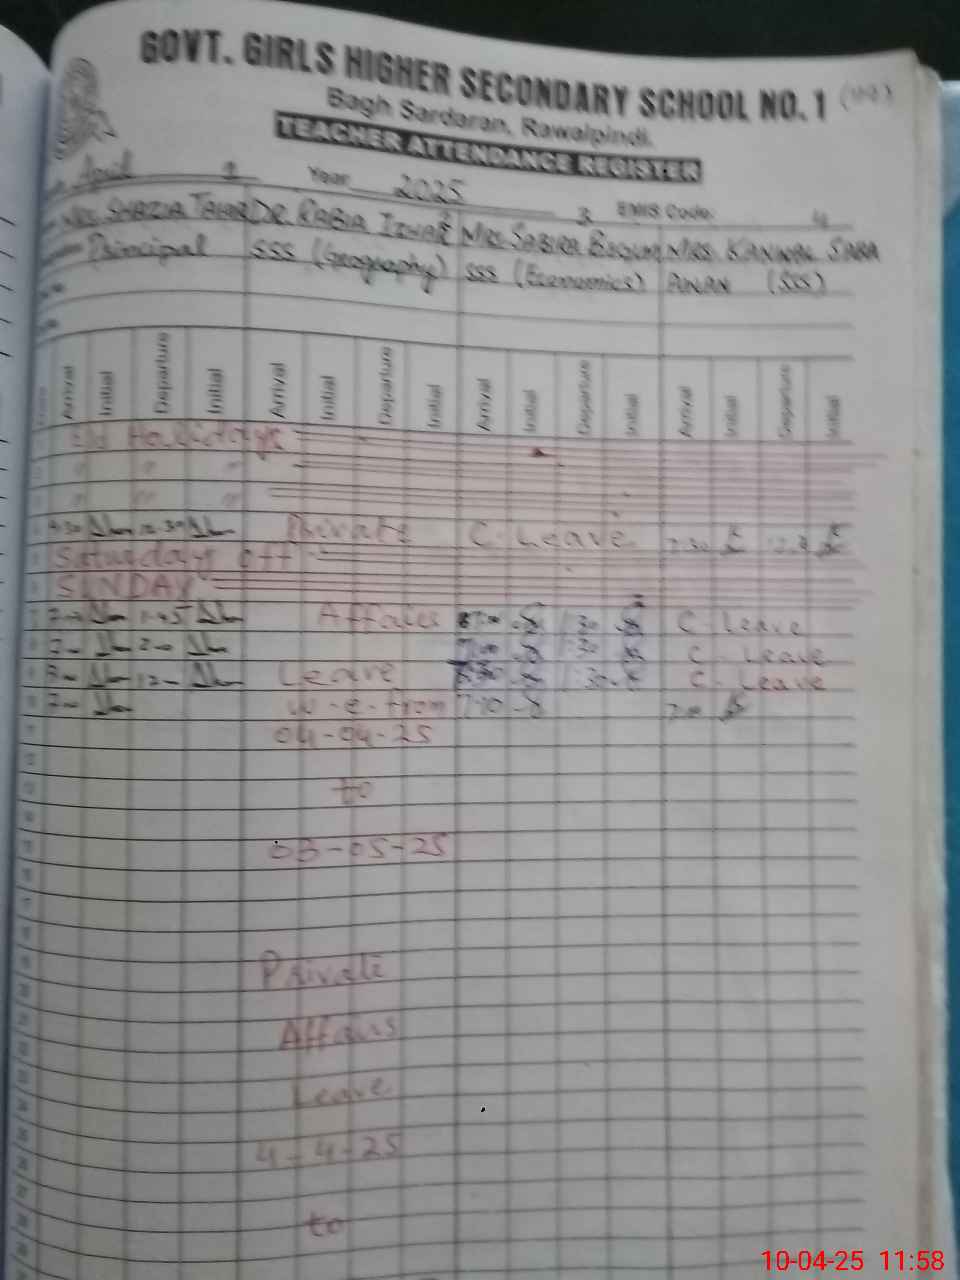 GOVT. GIRLS HIGHER SECONDARY SCHOOL NO. 1
Bagh Sardaran, Rawalpindi.
TEACHER ATTENDANCE REGISTER
April 1 Year 2025 2 3 EMIS Code: 4
Mrs. SHAZIA TAHIR DR RABIA IZHAR Mrs. SABIRA BEGUM Mrs. KANWAL SABA
Principal SSS (Geography) SSS (Economics) (SSS)
Arrival Initial Departure Initial Arrival Initial Departure Initial Arrival Initial Departure Initial Arrival Initial Departure Initial
Eid Holidays
" " "
" " "
Private C. Leave
Saturday off
SUNDAY
Affairs 7:00 1:30 C. Leave
7:00 1:30 C. Leave
Leave 1:30 C. Leave
w.e.from 7:10 7:00
04-04-25
to
03-05-25
Private
Affairs
Leave
4-4-25
to
10-04-25 11:58